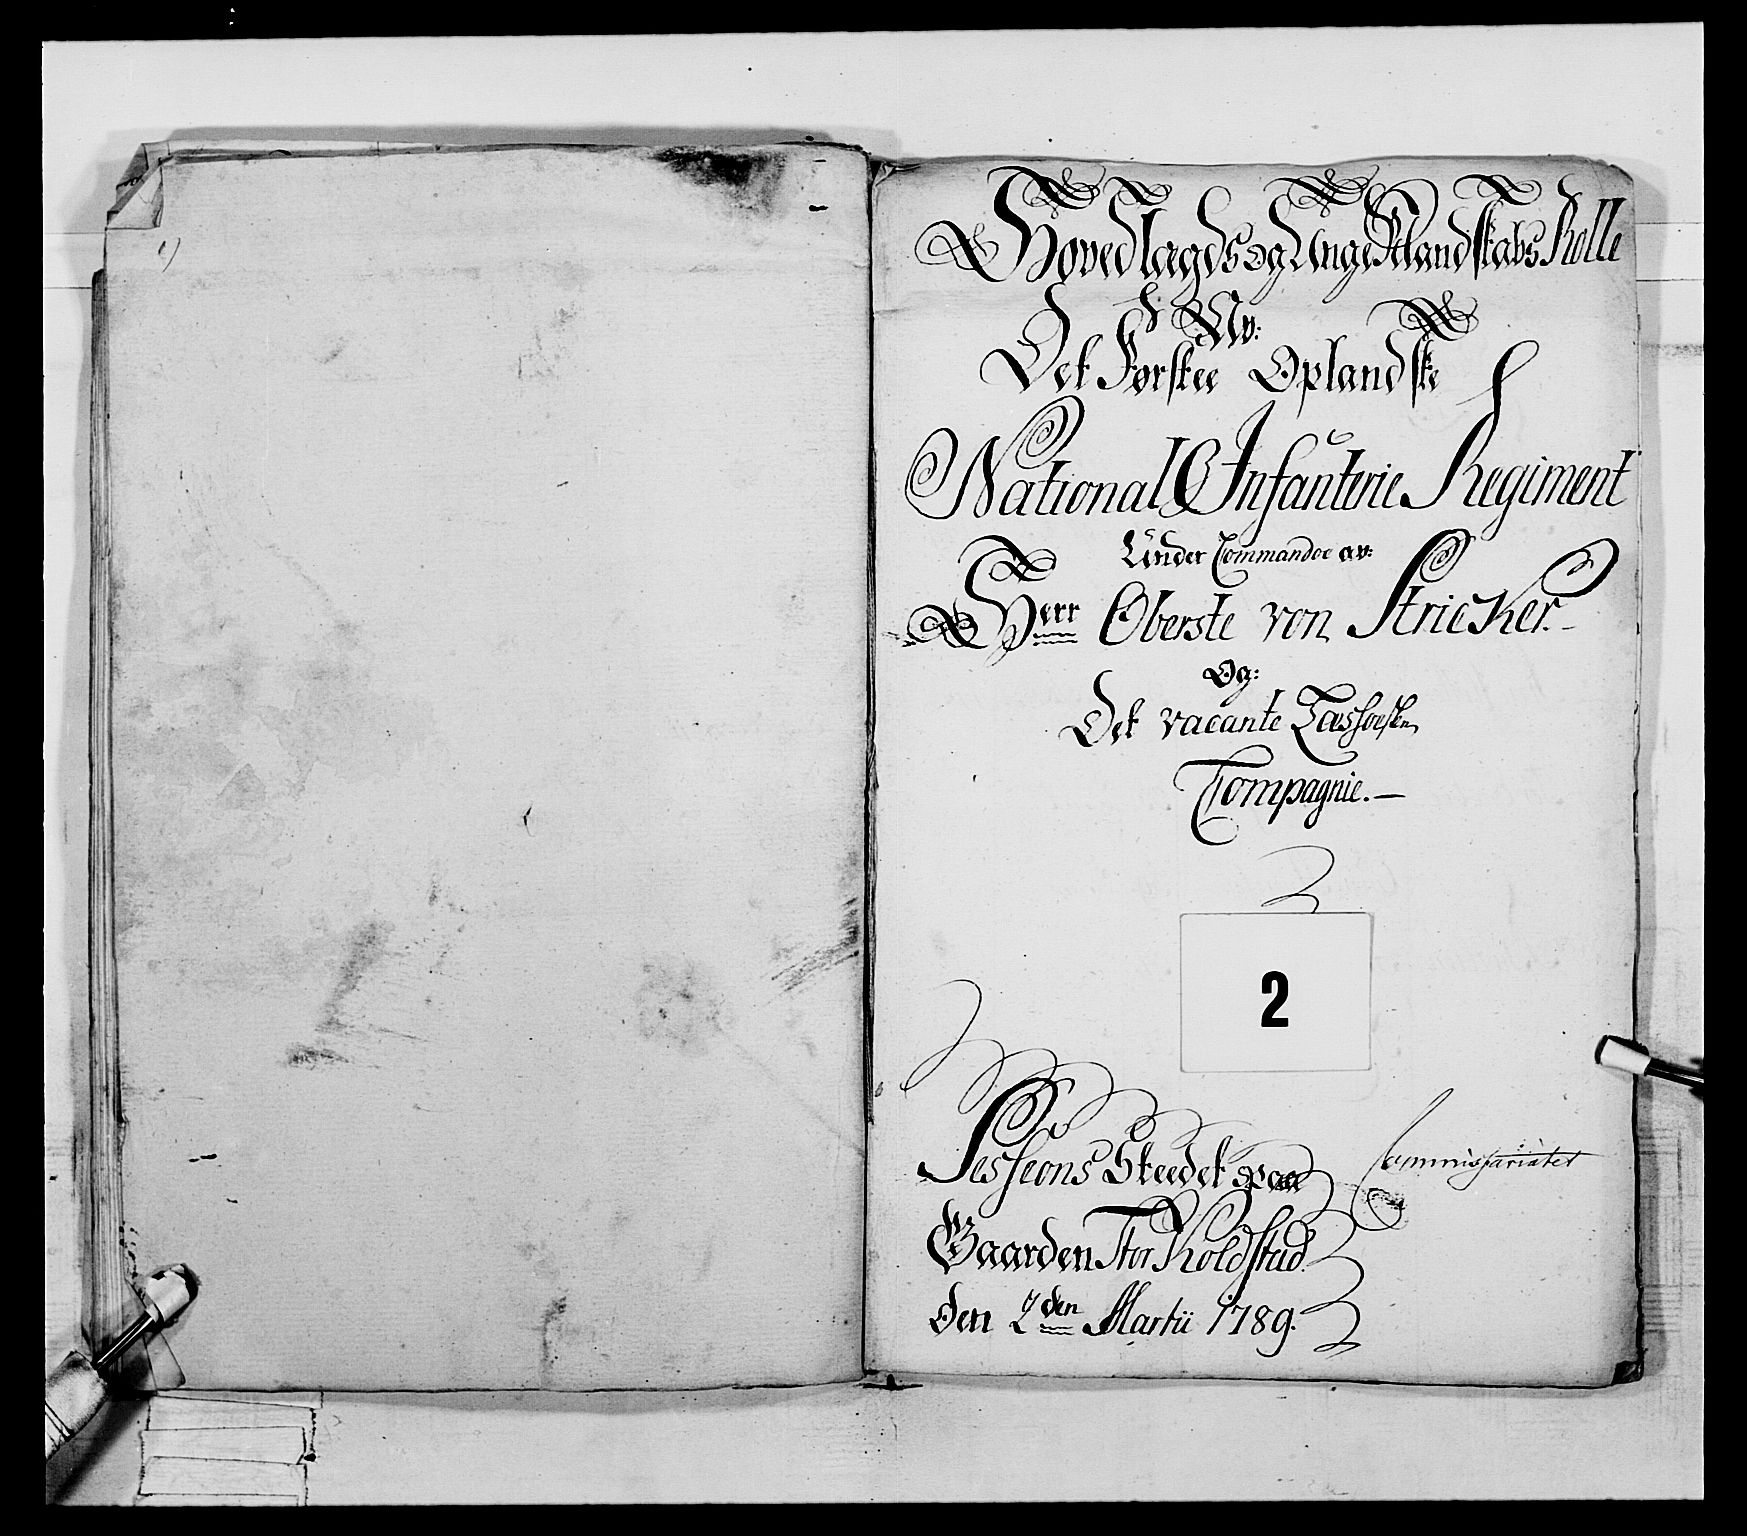 Hovedlagds og Unge Mandskabs Rolle
Av:
Det Førstee Oplandske
National Infanterie Regiment
Under Commandoe av:
Herr Oberste von Stricker.
Og:
Det vacante Læssøeske
Compagnie.
2
Sesseons Skeedet paa
Commissariatet
Gaarden Stor Koldstad
den 2den Martii 1789.